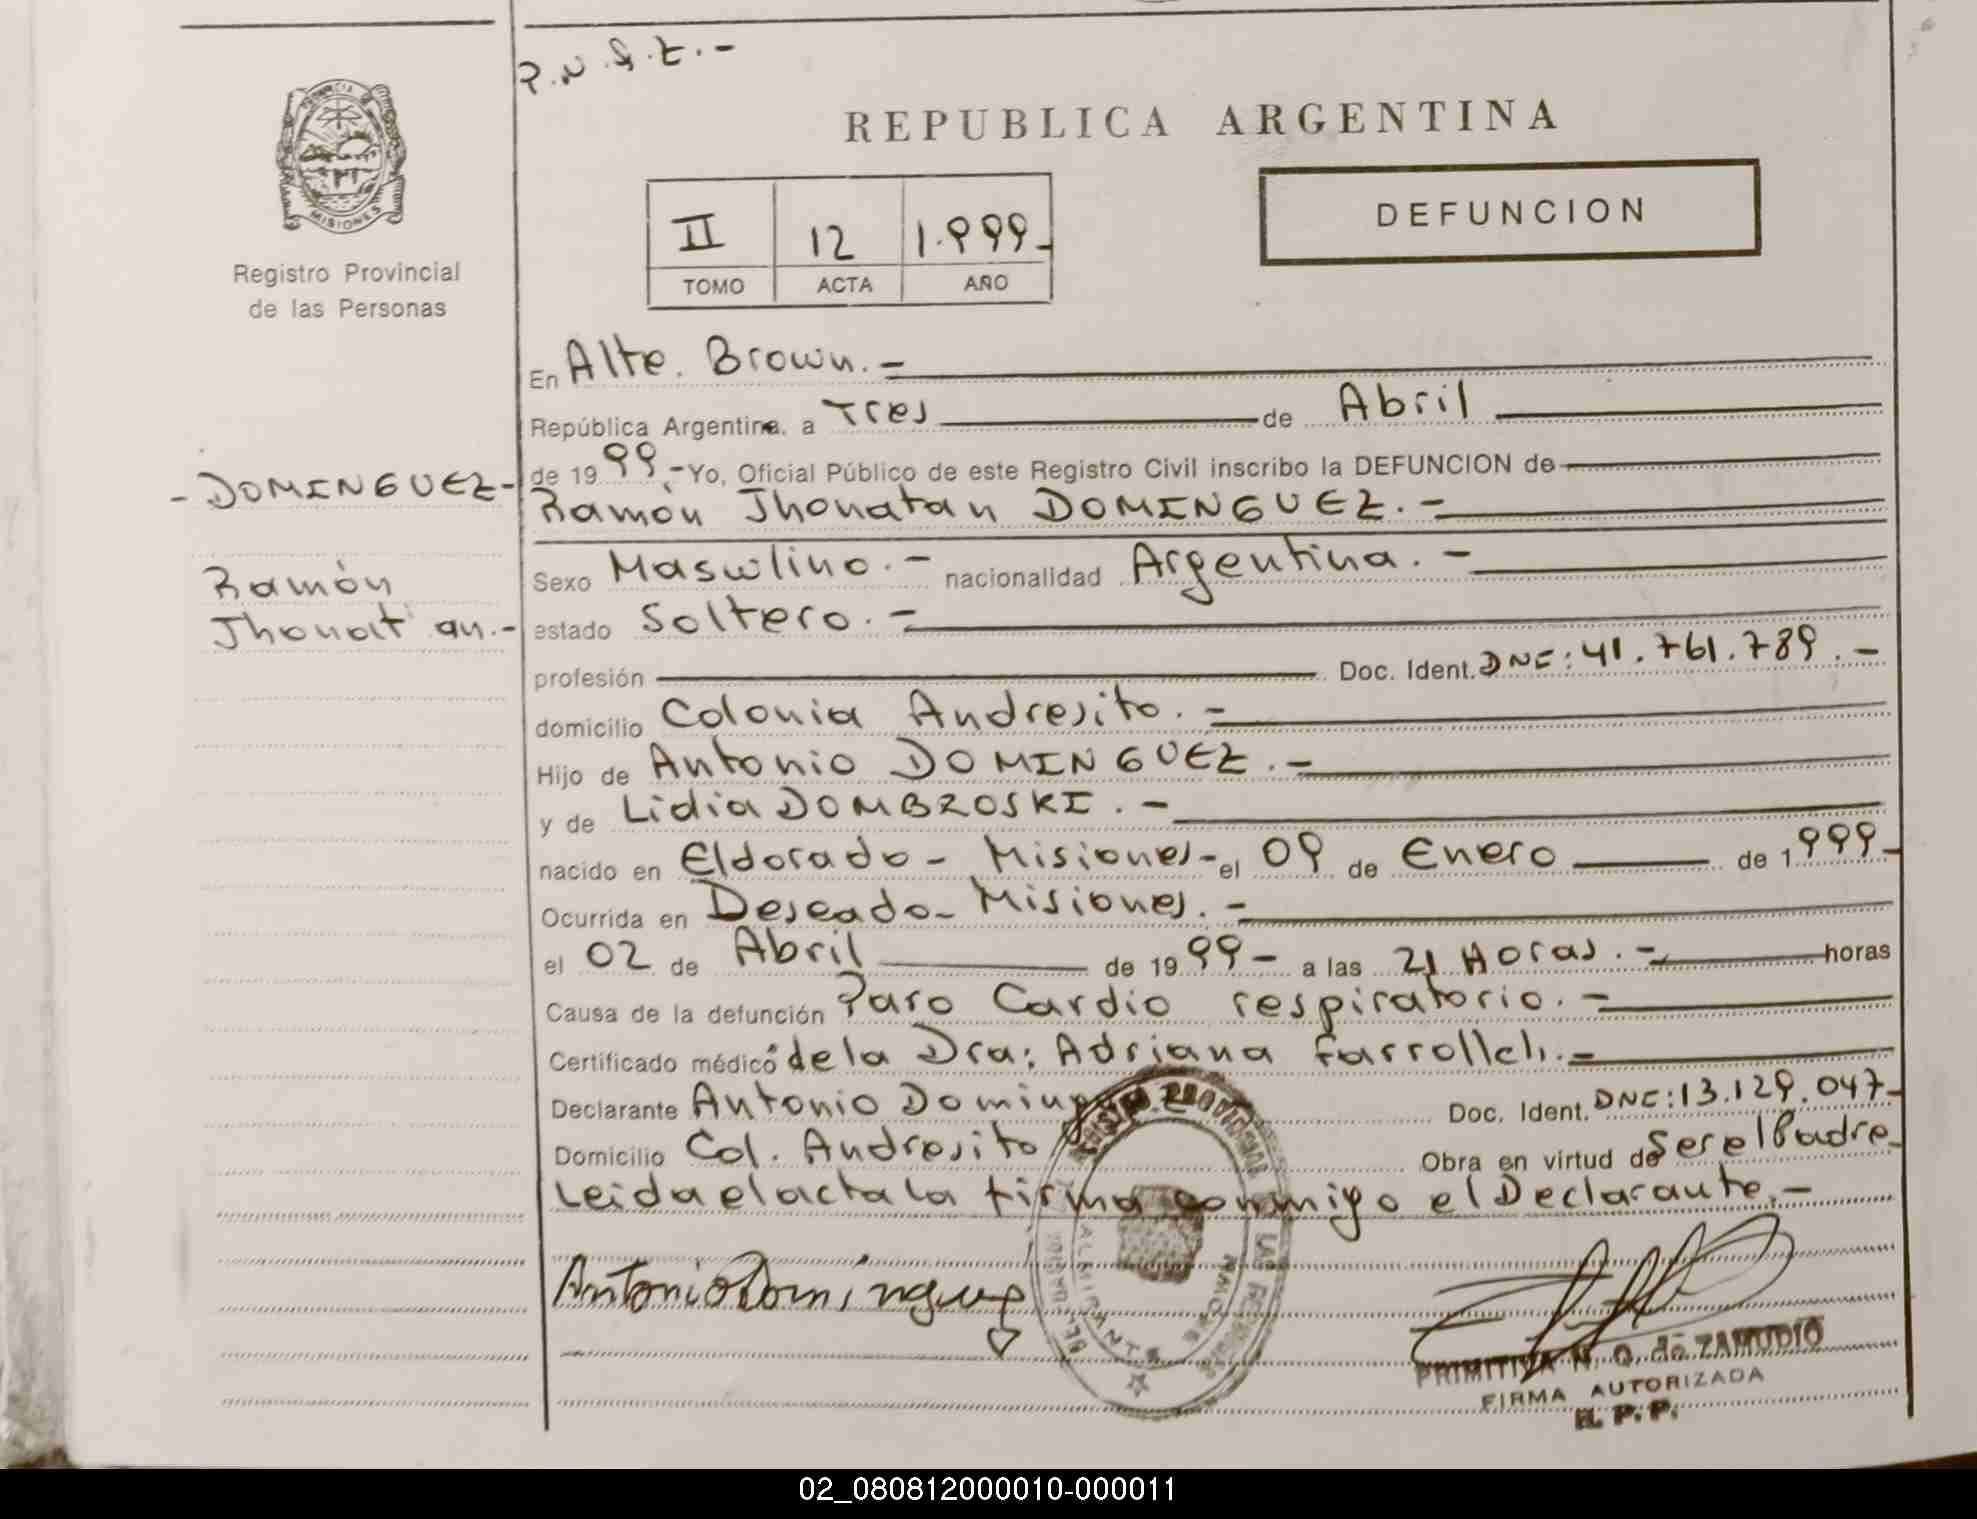 P.N.S.E.-
PROVINCIA DE
MISIONES
Registro Provincial
de las Personas
REPUBLICA ARGENTINA
DEFUNCION
II 12 1.999-
TOMO ACTA AÑO
En Alte. Brown.-
República Argentina, a Tres de Abril
- DOMINGUEZ-
de 1999.- Yo, Oficial Público de este Registro Civil inscribo la DEFUNCION de
Ramón Jhonatan DOMINGUEZ.-
Ramón
Jhonat an.-
Sexo Masculino.- nacionalidad Argentina.-
estado Soltero.-
profesión Doc. Ident. DNI: 41.761.789.-
domicilio Colonia Andresito.-
Hijo de Antonio DOMINGUEZ.-
y de Lidia DOMBROSKI.-
nacido en Eldorado- Misiones- el 09 de Enero de 1.999-
Ocurrida en Deseado- Misiones.-
el 02 de Abril de 1999- a las 21 Horas.- horas
Causa de la defunción Paro Cardio respiratorio.-
Certificado médico de la Dra: Adriana
Declarante Antonio Dominguez Doc. Ident. DNI: 13.129.047-
Domicilio Col. Andresito Obra en virtud de Ser el Padre-
Leida el acta la firma conmigo el Declarante.-
Antonio Dominguez
ALMIRANTE
PRIMITIVA N. O. de ZAMUDIO
FIRMA AUTORIZADA
R. P. P.
02_080812000010-000011